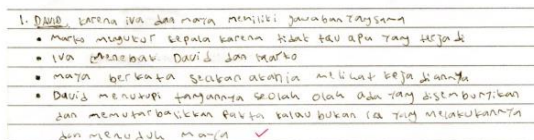 1. DAVID, karena iva dan maya memiliki jawaban yang sama
• Marko mugukur kepala karena tidak tau apa yang terjadi
• IVA menebak David dan marko
• maya berkata seakan akan ia melihat kejadiannya
• David menutupi tangannya seolah olah ada yang disembunyikan
dan memutarbalikkan fakta kalau bukan ia yang melakukannya
dan menuduh maya